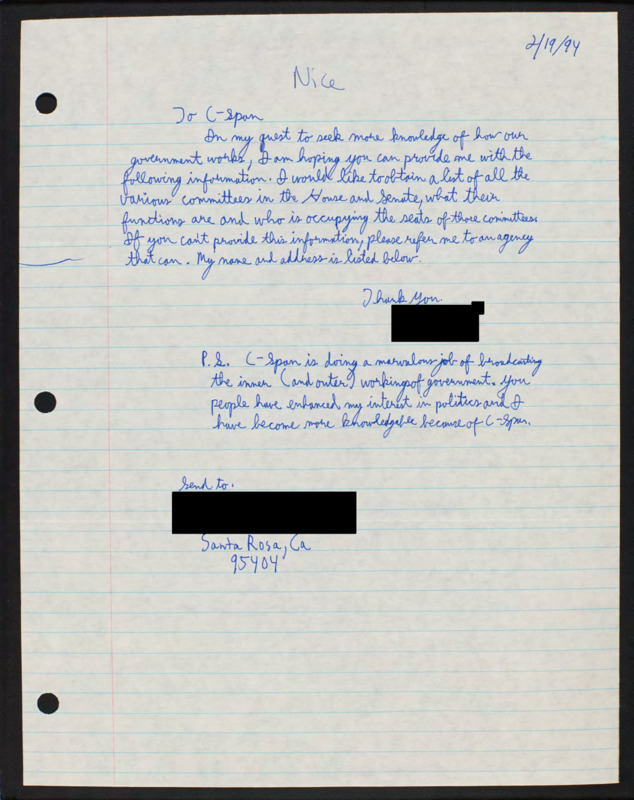 2/19/94
Nice
To C-Span
In my quest to seek more knowledge of how our
government works, I am hoping you can provide me with the
following information. I would like to obtain a list of all the
various committees in the House and Senate, what their
functions are and who is occupying the seats of those committees.
If you can't provide this information, please refer me to an agency
that can. My name and address is listed below.
Thank You.
P.S. C-Span is doing a marvalous job of broadcasting
the inner (and outer) workings of government. You
people have enhanced my interest in politics and I
have become more knowledgable because of C-Span.
Send to:
Santa Rosa, Ca
95404